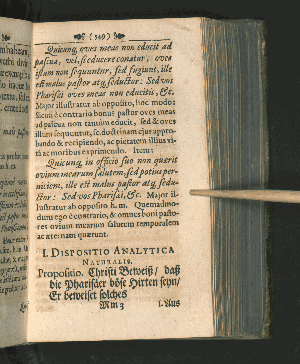 (549)
Quicunq, oves meas non educit ad
pascua, vel, seducere conatur; oves
illum non sequuntur, sed fugiunt, ille
est malus pastor atq, seductor: Sed vos
Pharisæi oves meas non educitis, &c.
Major illustratur ab opposito, hoc modo:
Sicuti è contrario bonus pastor oves meas
ad pascua non tantùm educit, sed & oves
illum sequuntur, se. doctrinam ejus appro-
bando & recipiendo, ac pietatem illius vi-
tâ ac moribus exprimendo. Item:
Quicunq, in officio suo non quærit
ovium mearum salutem, sed potius per-
niciem, ille est malus pastor atq, sedu-
ctor: Sed vos Pharisæi, &c. Major il-
lustratur ab opposito h. m. Quemadmo-
dum ego è contrario, & omnes boni pasto-
res ovium mearum salutem temporalem
ac æternam quærunt.
I. DISPOSITIO ANALYTICA
NATURALIS.
Propositio. Christi Beweiß / daß
die Pharisäer böse Hirten seyn /
Er beweiset solches
Mm 3 1. Aus